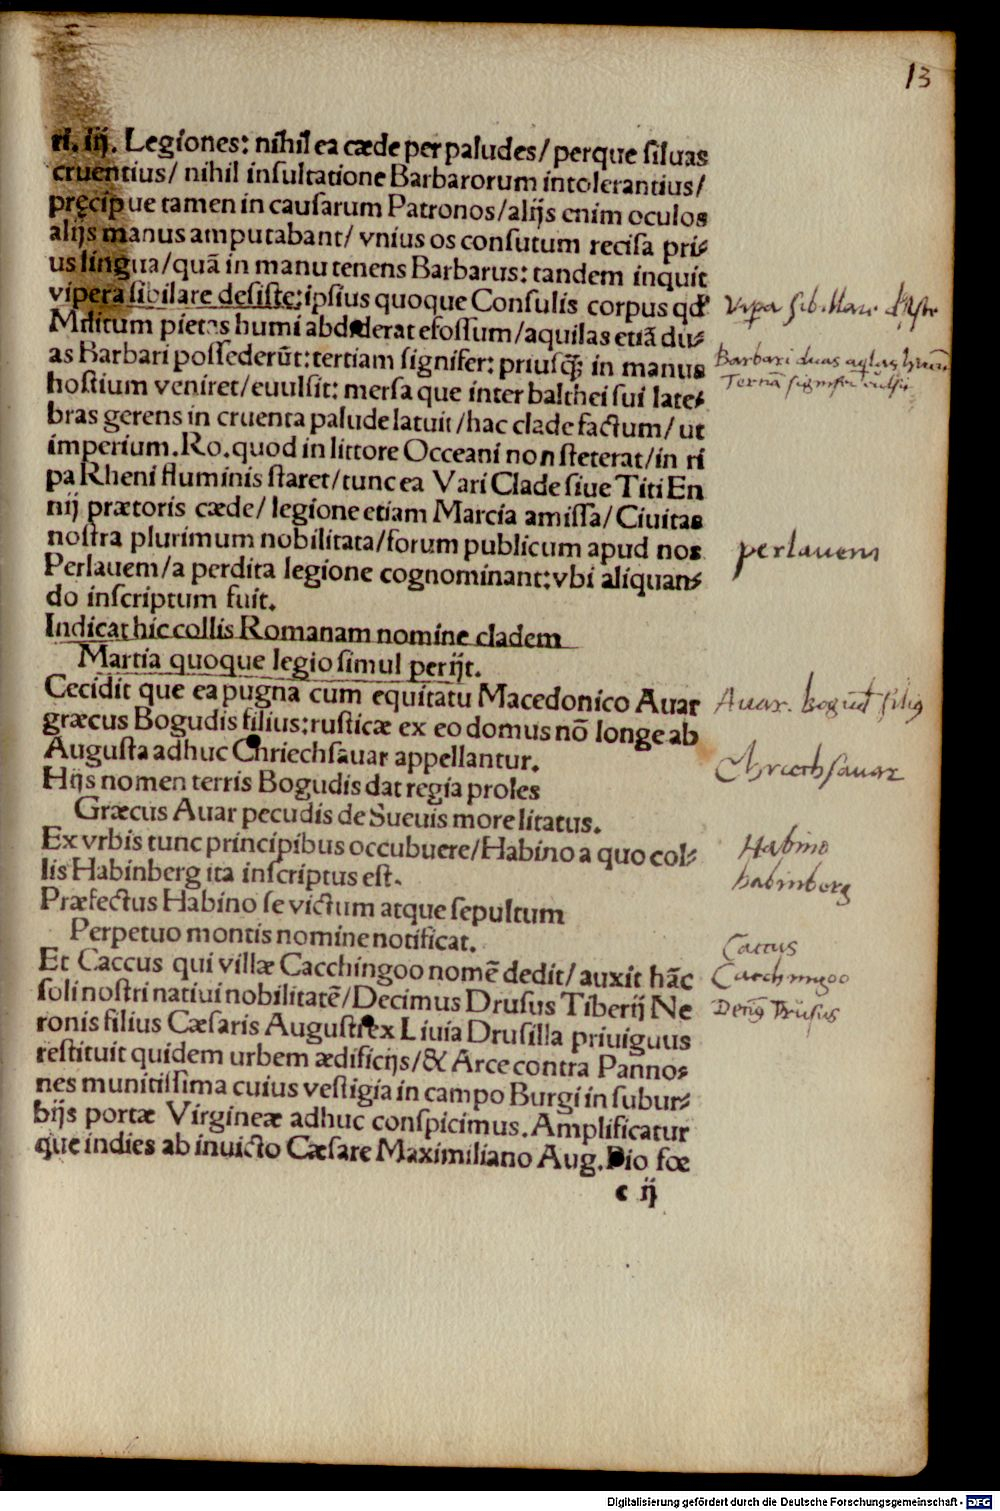 13
ri. iij. Legiones: nihil ea cæde per paludes/ perque siluas
cruentius/ nihil insultatione Barbarorum intolerantius/
pręcipue tamen in causarum Patronos/alijs enim oculos
alijs manus amputabant/ vnius os consutum recisa pri-
us lingua/quā in manu tenens Barbarus: tandem inquit
vipera sibilare desiste:ipsius quoque Consulis corpus qđ
Militum pietas humi abdiderat efossum/aquilas etiā du-
as Barbari possederūt:tertiam signifer: priusq̃; in manus
hostium veniret/euulsit: mersa que inter balthei sui late-
bras gerens in cruenta palude latuit/hac clade factum/ ut
imperium. Ro. quod in littore Occeani non steterat/in ri
pa Rheni fluminis staret/tunc ea Vari Clade siue Titi En
nij prætoris cæde/ legione etiam Marcia amissa/ Ciuitas
nostra plurimum nobilitata/forum publicum apud nos
Perlauem/a perdita legione cognominant:vbi aliquan-
do inscriptum fuit.
Indicat hic collis Romanam nomine cladem
Martia quoque legio simul perijt.
Cecidit que ea pugna cum equitatu Macedonico Auar
græcus Bogudis filius:rusticæ ex eo domus nō longe ab
Augusta adhuc Chriechsauar appellantur.
Hijs nomen terris Bogudis dat regia proles
Græcus Auar pecudis de Sueuis more litatus.
Ex vrbis tunc principibus occubuere/Habino a quo col-
lis Habinberg ita inscriptus est.
Præfectus Habino se victum atque sepultum
Perpetuo montis nomine notificat.
Et Caccus qui villæ Cacchingoo nomē dedit/ auxit hāc
soli nostri natiui nobilitatē/Decimus Drusus Tiberij Ne
ronis filius Cæsaris Augusti ex Liuia Drusilla priuignus
restituit quidem urbem ædificijs/& Arce contra Panno-
nes munitissima cuius vestigia in campo Burgi in subur-
bijs portæ Virgineæ adhuc conspicimus. Amplificatur
que indies ab inuicto Cæsare Maximiliano Aug. Pio fœ
c ij
Barbari duas
perlauem
Auar.
Chriechsauar
Habino
habinberg
Caccus
Cacchingoo
Drusus
Digitalisierung gefördert durch die Deutsche Forschungsgemeinschaft - DFG